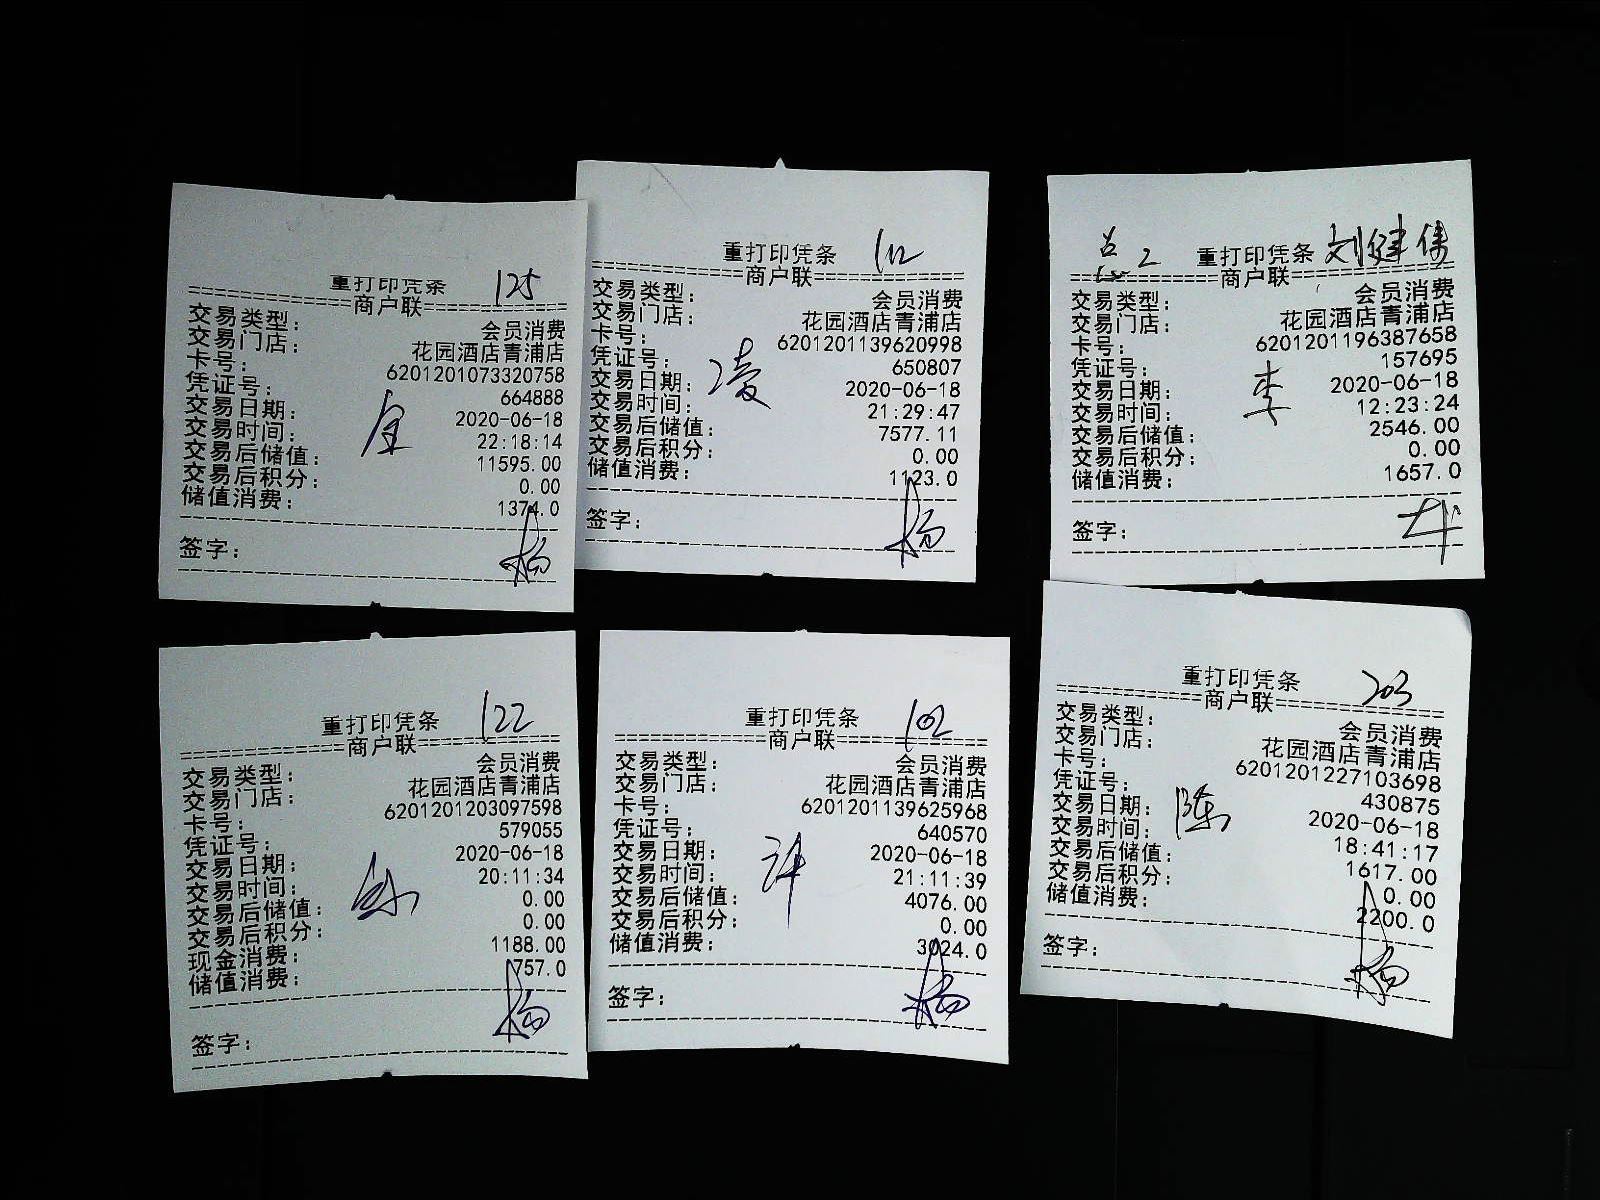 重打印凭条 125
商户联
交易类型： 会员消费
交易门店： 花园酒店青浦店
卡号： 6201201073320758
凭证号： 664888
交易日期： 2020-06-18
交易时间： 22:18:14
交易后储值： 11595.00
交易后积分： 0.00
储值消费： 1374.0
签字： 杨
重打印凭条 112
商户联
交易类型： 会员消费
交易门店： 花园酒店青浦店
卡号： 6201201139620998
凭证号： 650807
凌
交易日期： 2020-06-18
交易时间： 21:29:47
交易后储值： 7577.11
交易后积分： 0.00
储值消费： 1123.0
签字： 杨
2 重打印凭条 刘健伟
商户联
交易类型： 会员消费
交易门店： 花园酒店青浦店
卡号： 6201201196387658
凭证号： 157695
李
交易日期： 2020-06-18
交易时间： 12:23:24
交易后储值： 2546.00
交易后积分： 0.00
储值消费： 1657.0
签字：
重打印凭条 122
商户联
交易类型： 会员消费
交易门店： 花园酒店青浦店
卡号： 6201201203097598
凭证号： 579055
交易日期： 2020-06-18
交易时间： 20:11:34
交易后储值： 0.00
交易后积分： 0.00
现金消费： 1188.00
储值消费： 757.0
签字： 杨
重打印凭条 102
商户联
交易类型： 会员消费
交易门店： 花园酒店青浦店
卡号： 6201201139625968
凭证号： 640570
交易日期： 2020-06-18
许
交易时间： 21:11:39
交易后储值： 4076.00
交易后积分： 0.00
储值消费： 3024.0
签字： 杨
重打印凭条 203
商户联
交易类型： 会员消费
交易门店： 花园酒店青浦店
卡号： 6201201227103698
凭证号： 430875
交易日期： 2020-06-18
陈
交易时间： 18:41:17
交易后储值： 1617.00
交易后积分： 0.00
储值消费： 2200.0
签字： 杨